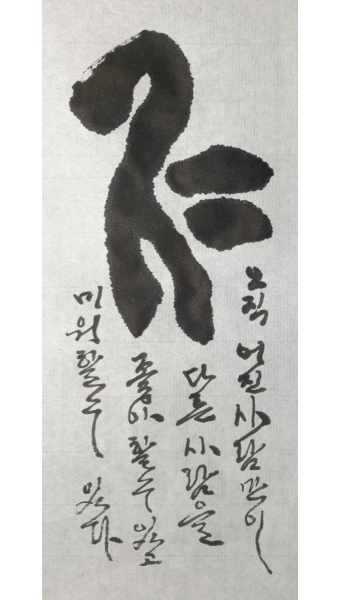 仁
오직 어진사람만이
다른 사람을
좋아할수 있고
미워할수 있다